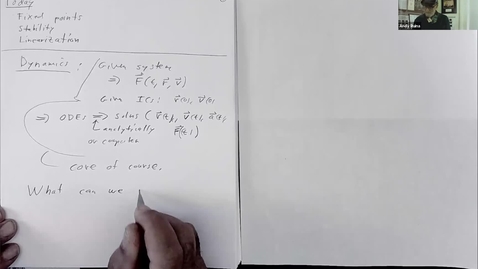 Today
Fixed points
Stability
Linearization
Dynamics : Given system
⇒ F⃗(t, r⃗, v⃗)
Given ICs: r⃗(t), v⃗(t)
⇒ ODEs ⇒ solns ( r⃗(t), v⃗(t), a⃗(t),
analytically F⃗(t) )
or computer
core of course.
What can we